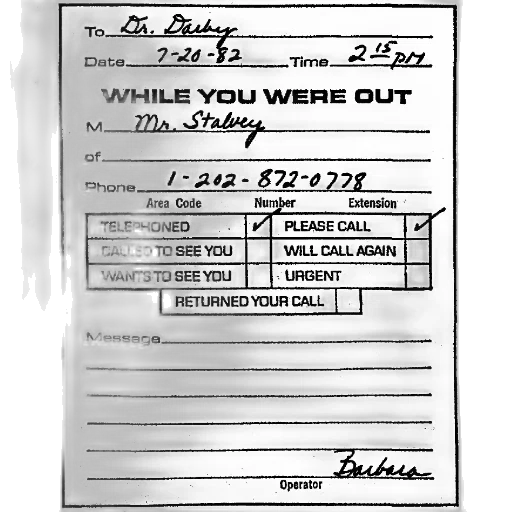 To Dr. Darby
Date 7-20-82 Time 2 15 PM
WHILE YOU WERE OUT
M Mr. Stalvey
of
Phone 1-202-872-0778
Area Code Number Extension
TELEPHONED ✓ PLEASE CALL ✓
CALLED TO SEE YOU WILL CALL AGAIN
WANTS TO SEE YOU URGENT
RETURNED YOUR CALL
Message
Barbara
Operator